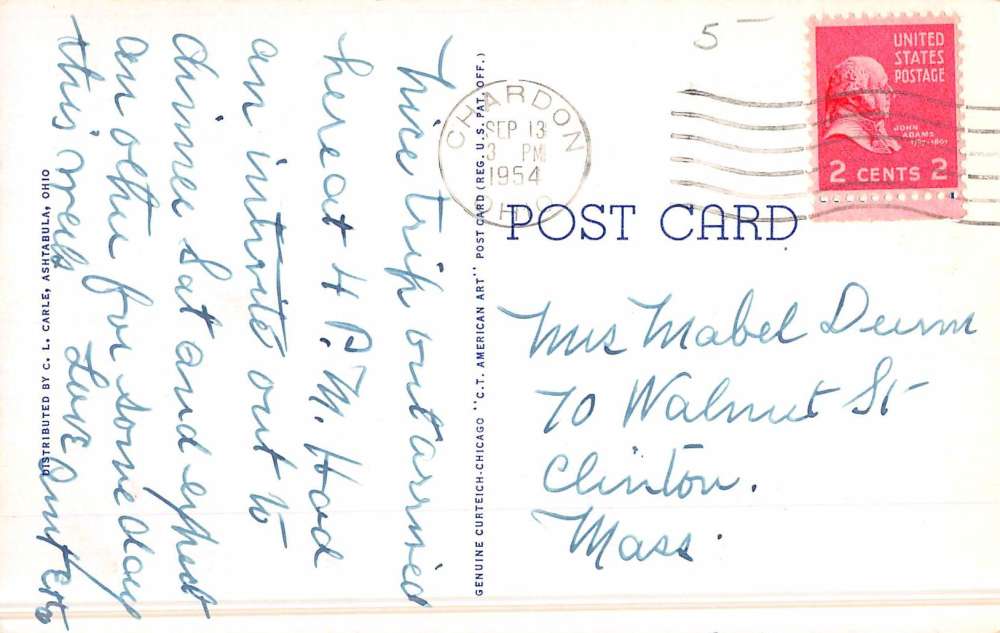 nice trip out arrived
here at 4 P.M. Had
an invite out to
dinner Sat and expect
an other for some day
this week Love Aunt Etta
DISTRIBUTED BY C. L. CARLE, ASHTABULA, OHIO
GENUINE CURTEICH-CHICAGO "C.T. AMERICAN ART" POST CARD (REG. U.S. PAT. OFF.)
5
CHARDON
SEP 13
3 PM
1954
OHIO
UNITED
STATES
POSTAGE
JOHN
ADAMS
1797-1801
2 CENTS 2
POST CARD
Mrs Mabel
70 Walnut St
Clinton.
Mass.